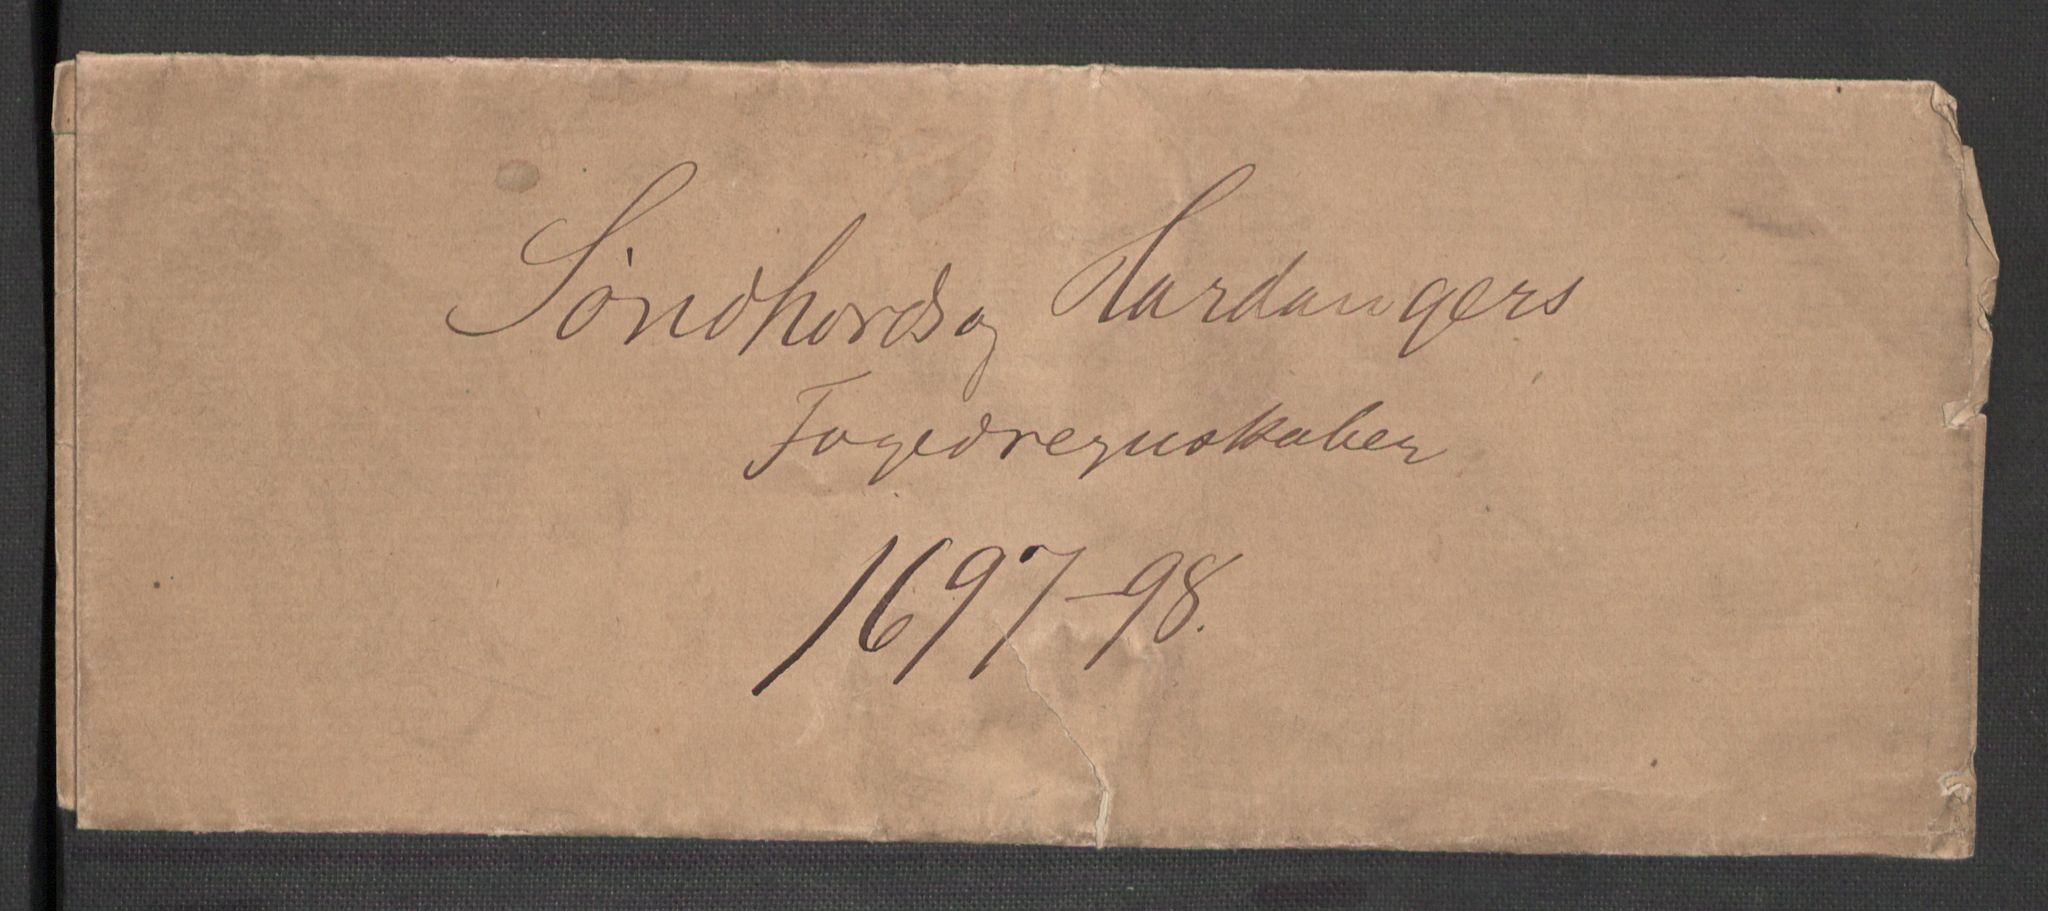 Søndhords og Hardangers
Fogedregnskaber
1697-98.